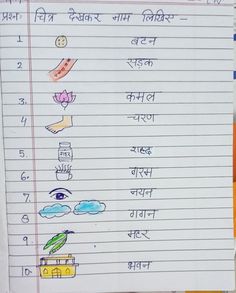 प्रश्न: चित्र देखकर नाम लिखिए -
1 बटन
2 सड़क
3. कमल
4 चरण
5. शहद
6. गरम
7. नयन
8 गगन
9. मटर
10. भवन